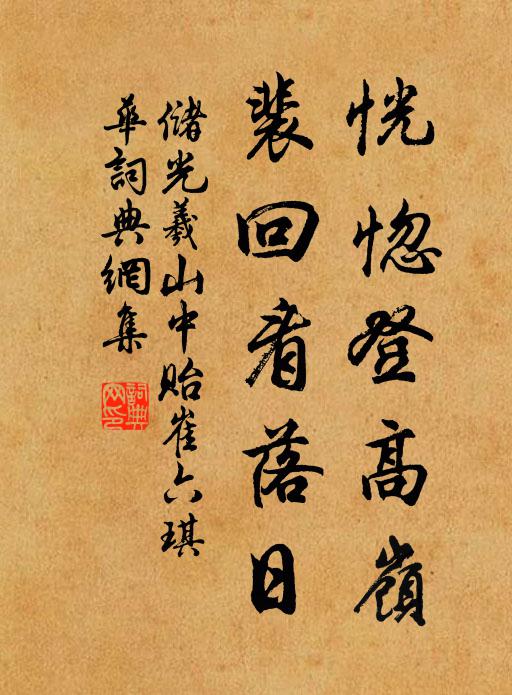 恍惚登高嶺
裴回看落日
儲光羲山中貽崔六琪
華詞典網集
詞典網印